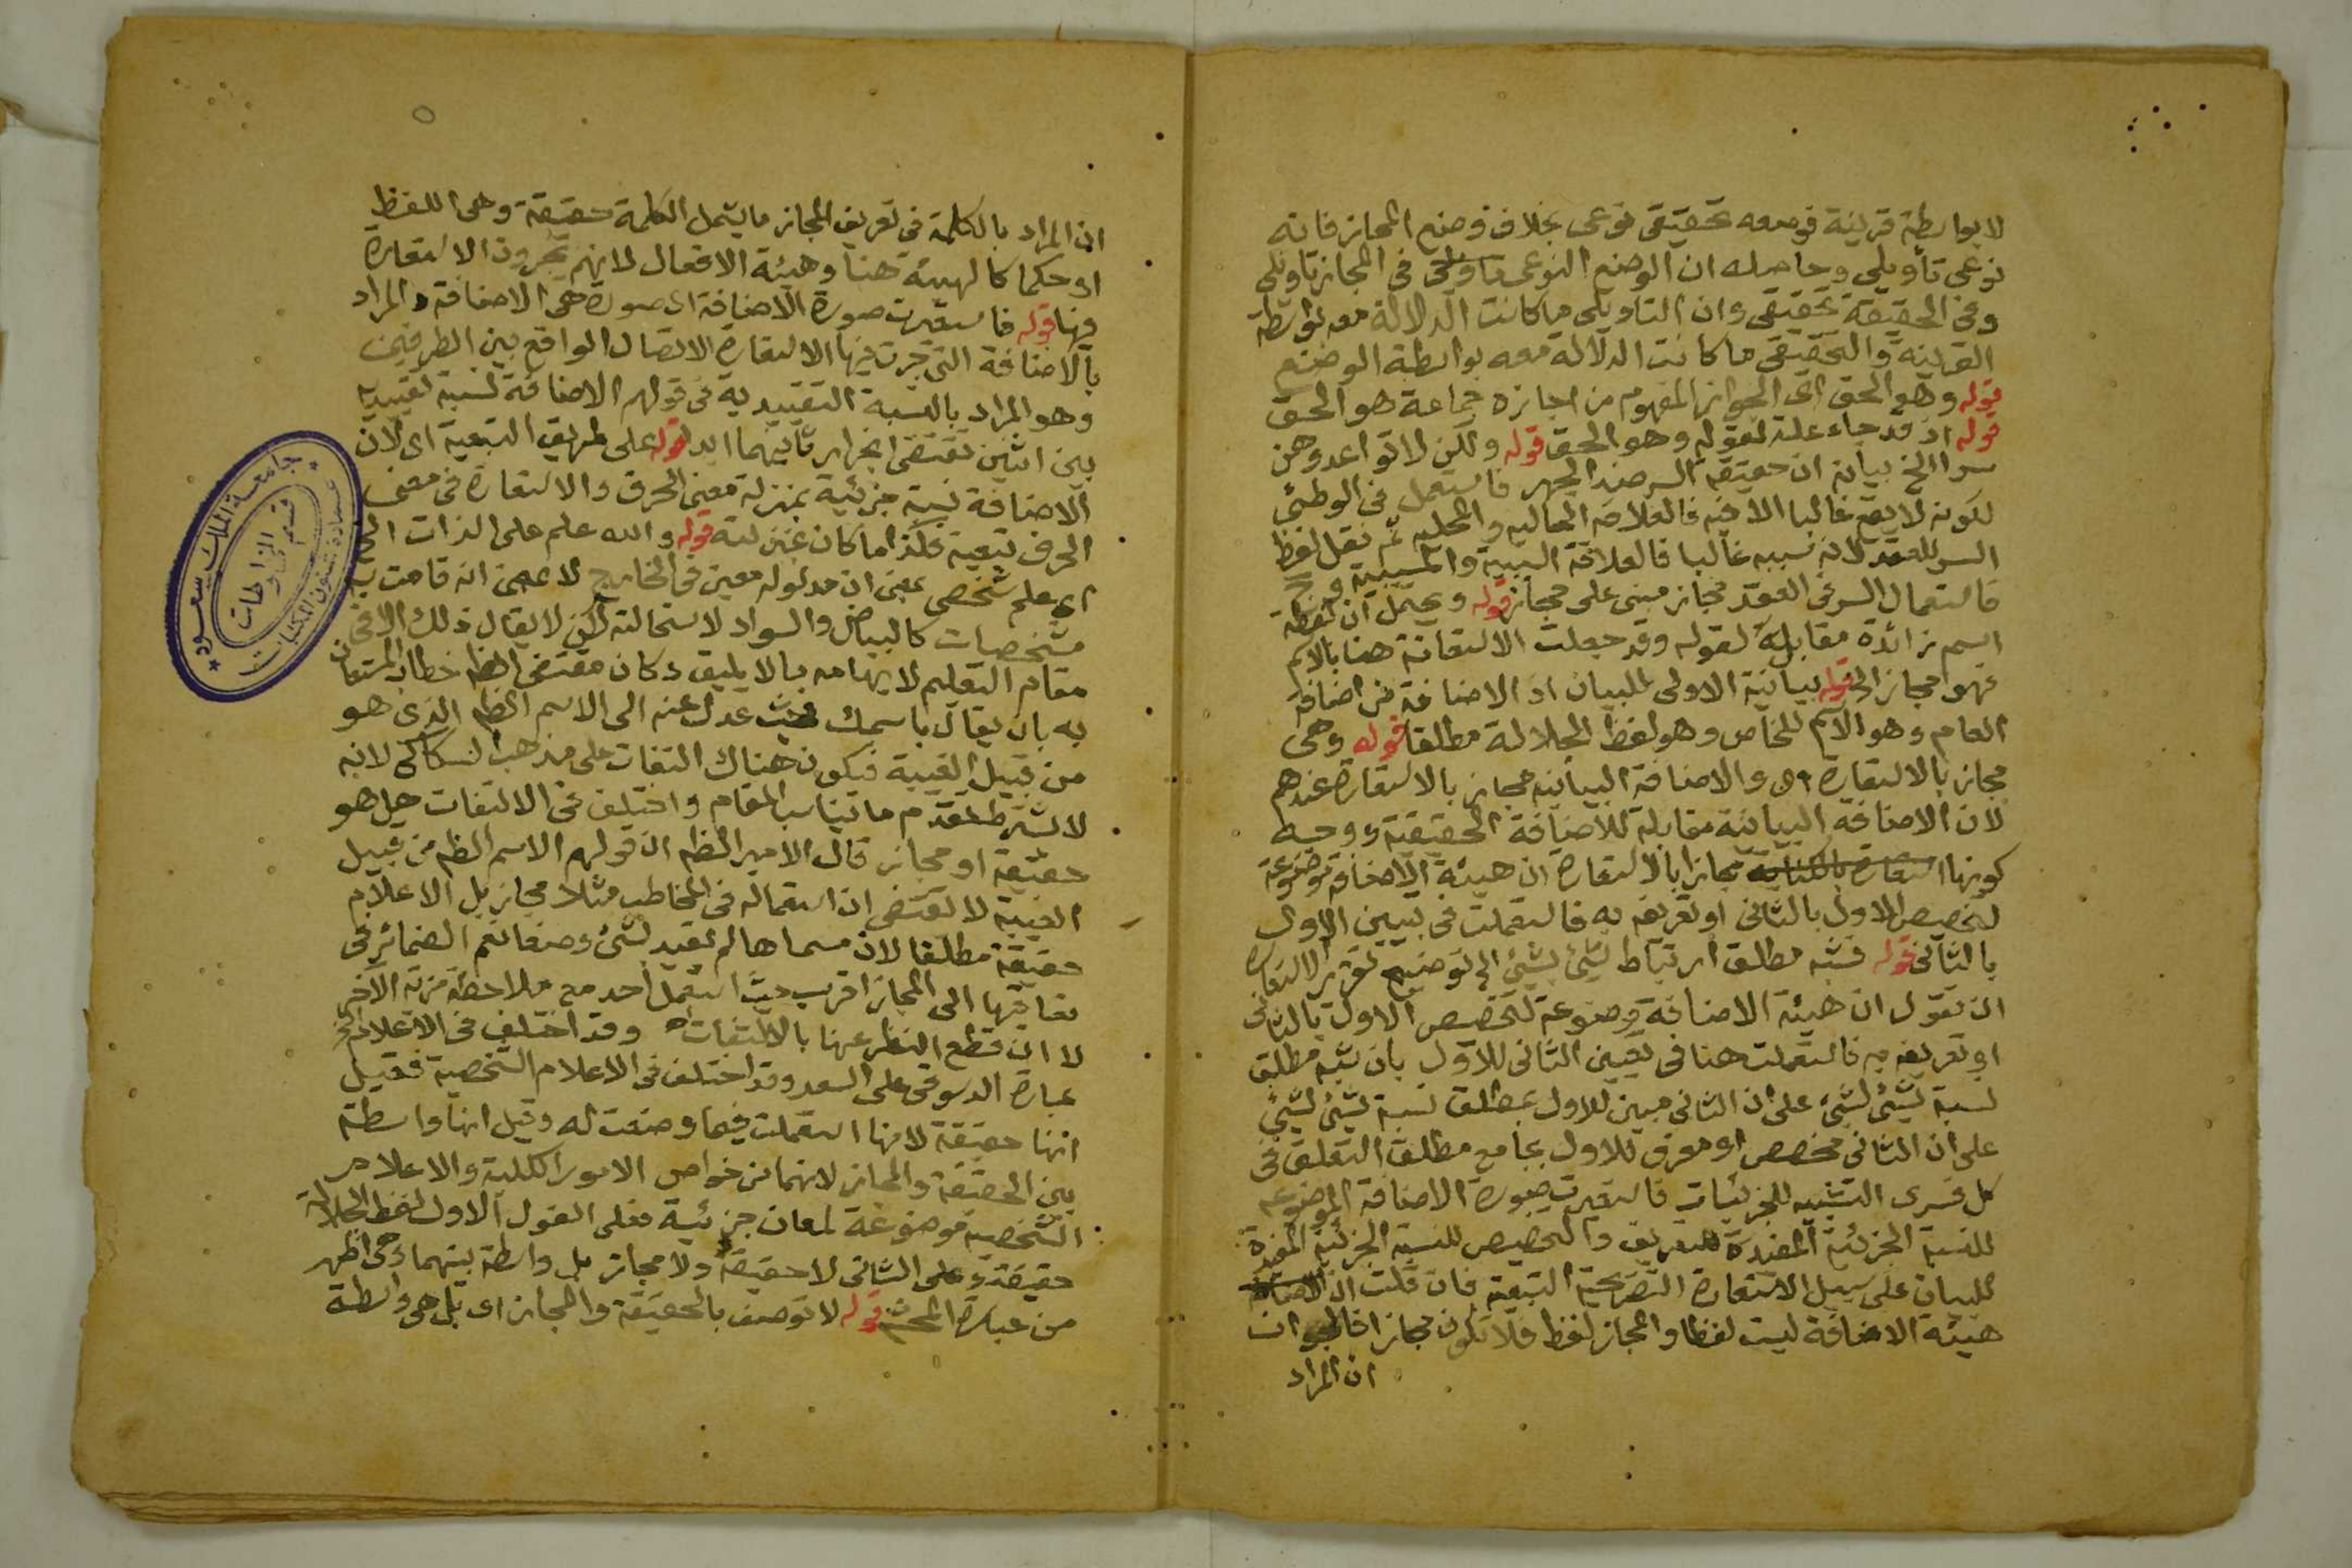 لا بواسطة قرينة فوضعه تحقيقى نوعى بخلاف وضع المجاز فانه
نوعى تأويلى وحاصله ان الوضع النوعى فى المجاز تاويلى
وفى الحقيقة تحقيقى وان التاويلى ما كانت الدلالة معه بواسطة
القرينة والتحقيقى ما كانت الدلالة معه بواسطة الوضع
قوله وهو الحق اى الجواز المفهوم من اجازه جماعة هو الحق
قوله اذ قد جاء علة لقوله وهو الحق قوله ولكن لا تواعدوهن
سرا الخ بيانه ان حقيقة السر ضد الجهر فاستعمل فى الوطئ
لكونه لا يقع غالبا الا فيه فالعلاقة الحاليه والمحليه ثم نقل لفظ
السر للعقد لانه سببه غالبا فالعلاقة السببية والمسببية
فاستعمال السر فى العقد مجاز مبنى على مجاز قوله ويحتمل ان لفظة
اسم زائدة مقابله لقوله وقد جعلت الاستعانة هنا بالاسم
فهو مجاز الخ قوله بيانية الاولى للبيان اذ الاضافة من اضافة
العام وهو الاسم للخاص وهو لفظ الجلالة مطلقا قوله وهى
مجاز بالاستعارة اى والاضافة البيانيه مجاز بالاستعارة عندهم
لان الاضافة البيانية مقابلة للاضافة الحقيقية ووجه
كونها استعارة بالكناية مجازا بالاستعارة ان هيئة الاضافة موضوعة
لتخصيص الاول بالثانى او تعريفه به فاستعملت فى تبيين الاول
بالثانى قوله فشبه مطلق ارتباط شئ بشئ الخ توضيح تقرير الاستعارة
ان نقول ان هيئة الاضافة موضوعة لتخصيص الاول بالثانى
او تعريفه به فاستعملت هنا فى تبيين الثانى للاول بان شبه مطلق
نسبة شئ لشئ على ان الثانى مبين للاول بمطلق نسبة شئ لشئ
على ان الثانى مخصص او معرف للاول بجامع مطلق التعلق فى
كل فسرى التشبيه للجزئيات فاستعيرت صورة الاضافة الموضوعه
للنسبة الجزئية المفيدة للتعريف والتخصيص للنسبة الجزئية المفيدة
للبيان على سبيل الاستعارة التصريحية التبعية فان قلت ان الاضافة
هيئة الاضافة ليست لفظا والمجاز لفظ فلا تكون مجازا فالجواب
ان المراد
ان المراد بالكلمة فى تعريف المجاز ما يشمل الكلمة حقيقة وهى اللفظ
او حكما كالهيئة هنا وهيئة الافعال لانهم يجرون الاستعارة
فيها قوله فاستعيرت صورة الاضافة اى صورة هى الاضافة والمراد
بالاضافة التى جرت فيها الاستعارة الاتصال الواقع بين الطرفين
وهو المراد بالنسبة التقييدية فى قولهم الاضافة نسبة تقييديه
بين اثنين تقتضى انجرار ثانيهما ابدا قوله على طريق التبعية اى لان
الاضافة نسبة جزئية بمنزلة معنى الحرف والاستعارة فى معنى
الحرف تبعية فكذا ما كان بمنزلته قوله والله علم على الذات الخ
اى علم شخصى بمعنى ان مدلوله معين فى الخارج لا بمعنى انه قامت به
مشخصات كالبياض والسواد لاستحالته لكن لا يقال ذلك الا فى
مقام التعليم لايهامه ما لا يليق وكان مقتضى الظه خطاب المستعان
به بان يقال باسمك فحيث عدل عنه الى الاسم الظه الذى هو
من قبيل الغيبة فيكون هناك التفات على مذهب السكاكى لانه
لا يشترط تقدم ما يناسب المقام واختلف فى الالتفات هل هو
حقيقة او مجاز قال الامير الظه ان قولهم الاسم الظه من قبيل
الغيبة لا يقتضى ان استعماله فى المخاطب مثلا مجاز بل الاعلام
حقيقة مطلقا لان مسماها لم تقيد بشئ وضعا نعم الضمائر فى
تعاقبها الى المجاز اقرب حيث استعمل احد مع ملاحظة مزية الآخر
لا ان قطع النظر عنها بالالتفات وقد اختلف فى الاعلام
عبارة الدسوقى على السعد وقد اختلف فى الاعلام الشخصية فقيل
انها حقيقة لانها استعملت فيما وضعت له وقيل انها واسطة
بين الحقيقة والمجاز لانهما من خواص الامور الكلية والاعلام
الشخصية موضوعة لمعان جزئية فعلى القول الاول لفظ الجلالة
حقيقة وعلى الثانى لا حقيقة ولا مجاز بل واسطة بينهما وهى اظهر
من عبارة المحشى قوله لا توصف بالحقيقة والمجاز اى بل هى واسطة
جامعة الملك سعود
عمادة شئون المكتبات
قسم المخطوطات